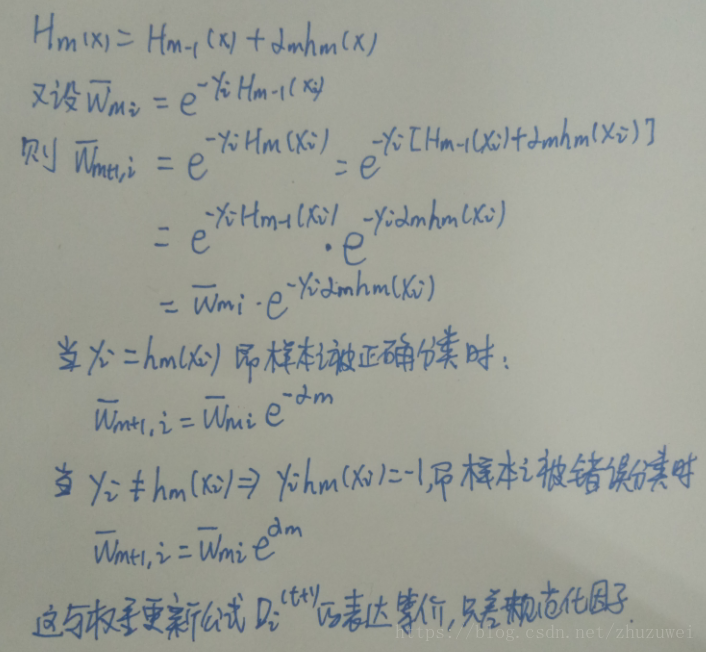 Hm(x) = Hm-1(x) + αmhm(x)
又设 W̄mi = e^{-yiHm-1(xi)}
则 W̄m+1,i = e^{-yiHm(xi)} = e^{-yi[Hm-1(xi)+αmhm(xi)]}
= e^{-yiHm-1(xi)} · e^{-yiαmhm(xi)}
= W̄mi · e^{-yiαmhm(xi)}
当 yi = hm(xi) 即样本i被正确分类时:
W̄m+1,i = W̄mi e^{-αm}
当 yi ≠ hm(xi) ⇒ yihm(xi) = -1, 即样本i被错误分类时
W̄m+1,i = W̄mi e^{αm}
这与权重更新公式 Di^{(t+1)} 的表达等价, 只差规范化因子
https://blog.csdn.net/zhuzuwei